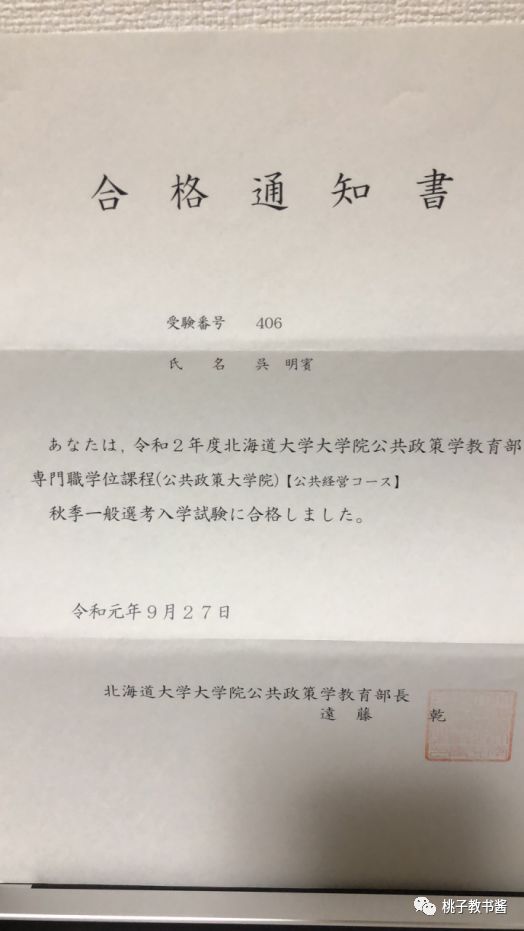 合格通知書
受験番号 406
氏 名 呉 明賓
あなたは，令和２年度北海道大学大学院公共政策学教育部
専門職学位課程(公共政策大学院)【公共経営コース】
秋季一般選考入学試験に合格しました。
令和元年９月２７日
北海道大学大学院公共政策学教育部長
遠 藤 乾
桃子教书酱